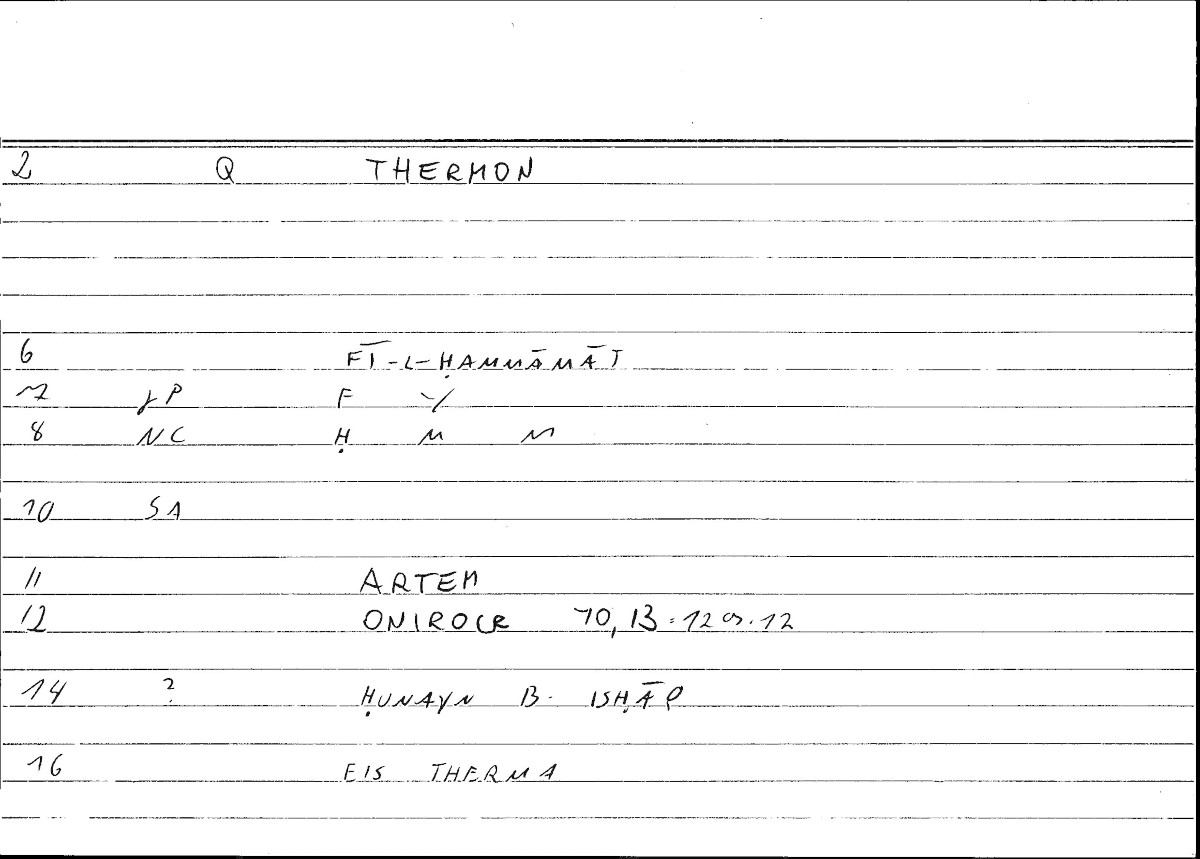 2 Q THERMON
6 FĪ-L-ḤAMMĀMĀT
7 JP F Y
8 NC Ḥ M M
10 SA
11 ARTEM
12 ONIROCR 70, 13 = 129.12
14 ? ḤUNAYN B. ISḤĀQ
16 EIS THERMA